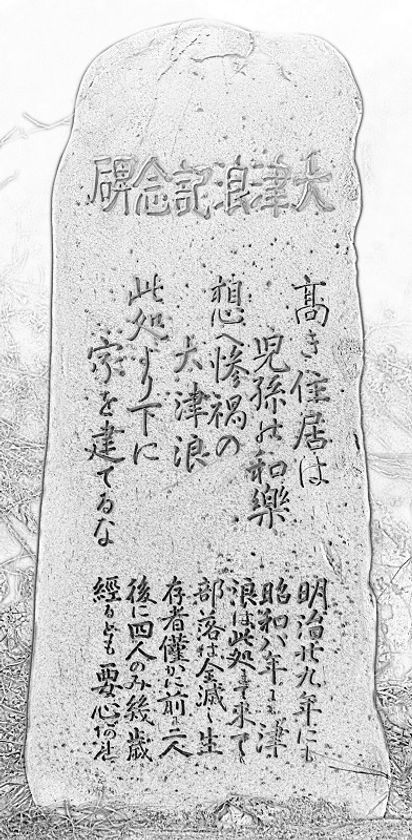 大津浪記念碑
高き住居は
児孫の和樂
想へ惨禍の
大津浪
此処より下に
家を建てるな
明治廿九年にも
昭和八年にも津
浪は此処まで来て
部落は全滅し生
存者僅かに前に二人
後に四人のみ幾歳
經るとも要心あれ